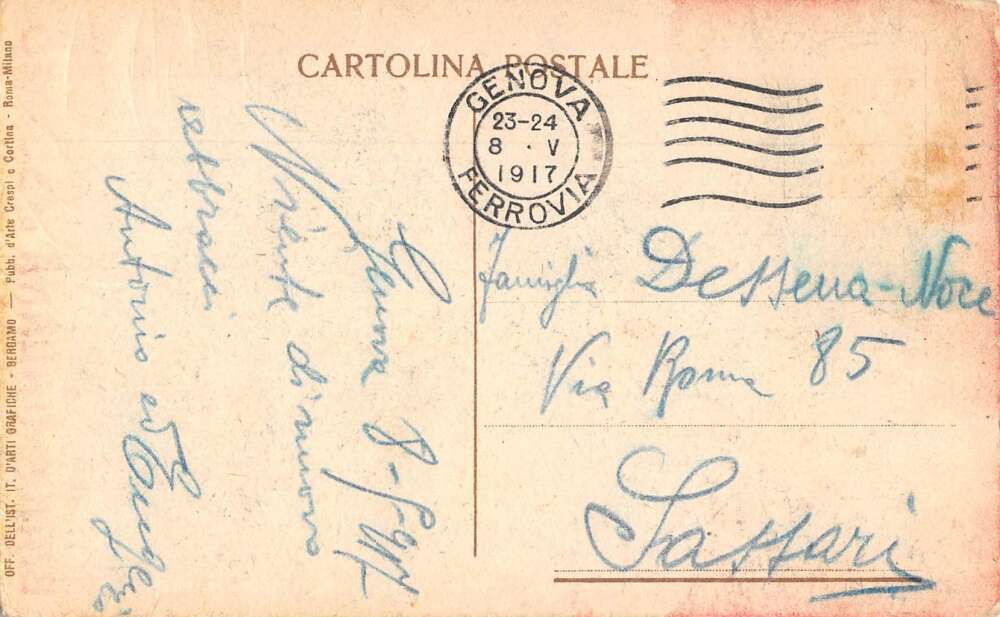 CARTOLINA POSTALE
GENOVA
23-24
8 · V
1917
FERROVIA
Genova 8-5-917
Niente di nuovo
abbracci
Antonio ed
Famiglia Dessena-Noce
Via Roma 85
Sassari
OFF. DELL'IST. IT. D'ARTI GRAFICHE - BERGAMO — Pubb. d'Arte Crespi e Cortina - Roma-Milano